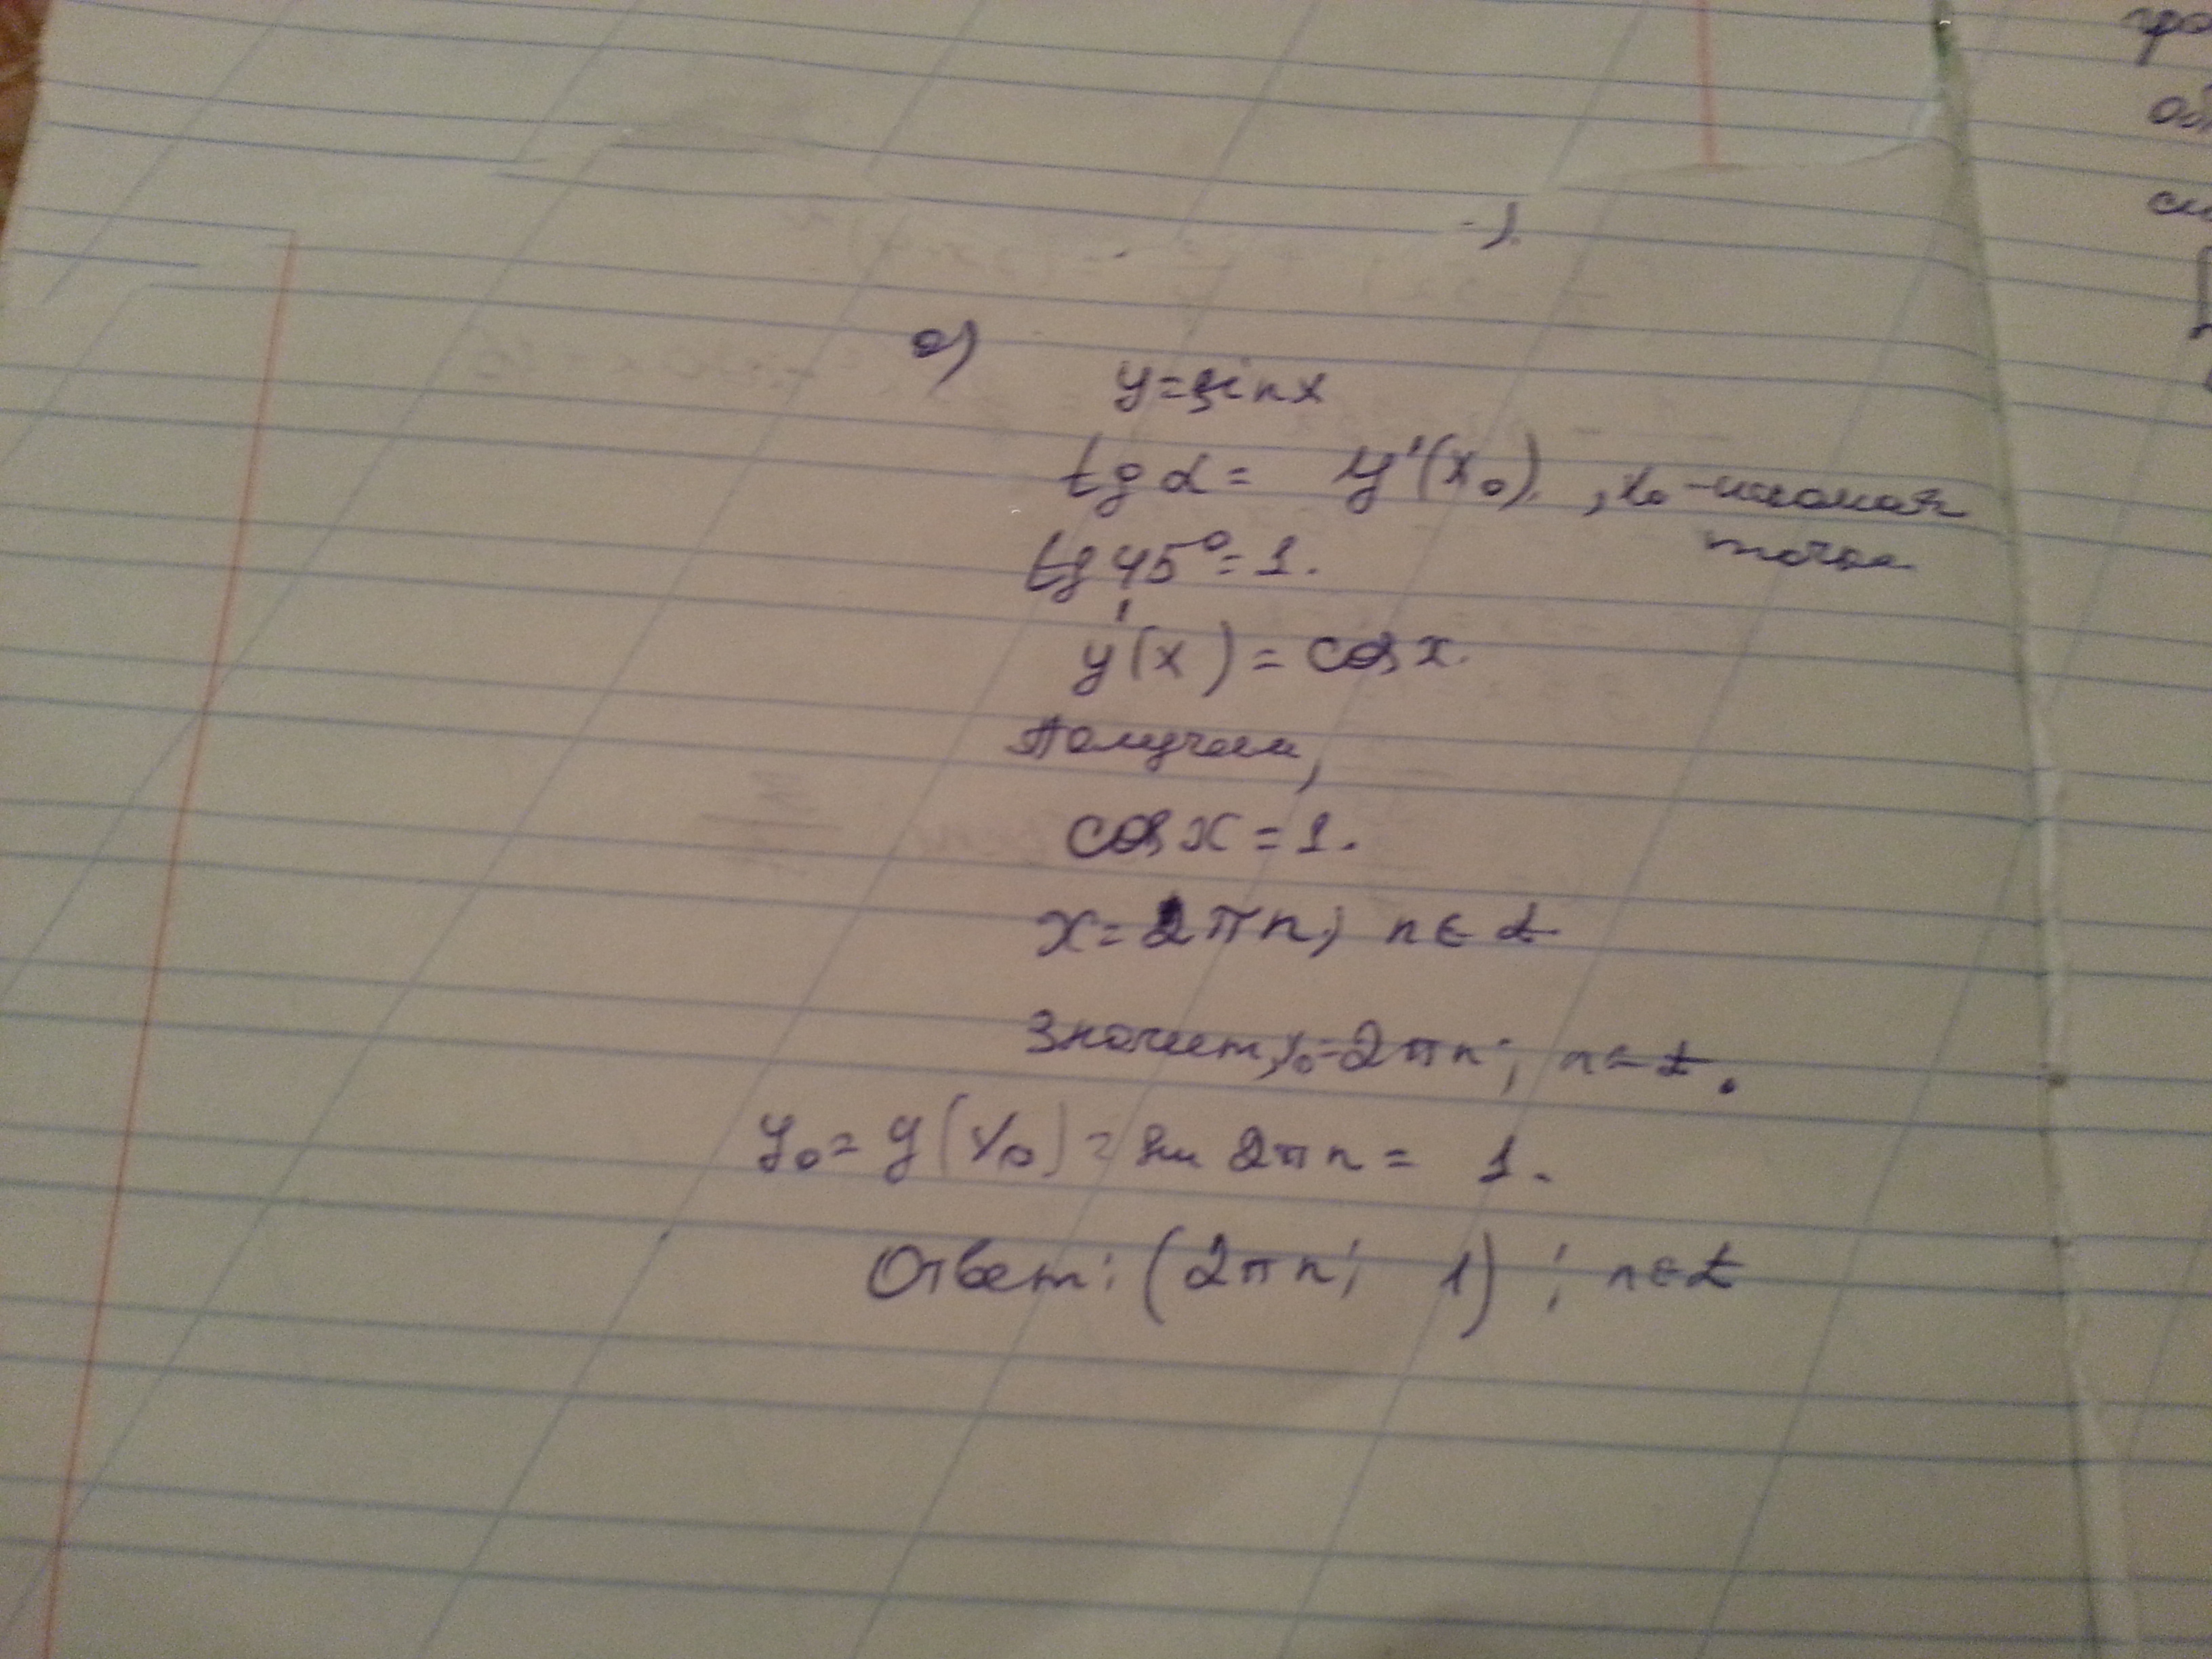 а) y=sinx
tg α = y'(x₀), x₀ - искомая
точка
tg 45°=1.
y'(x) = cos x.
Получаем,
cos x = 1.
x = 2πn; n ∈ Z.
Значит, x₀=2πn; n ∈ Z.
y₀ = y(x₀) = sin 2πn = 1.
Ответ: (2πn; 1); n ∈ Z